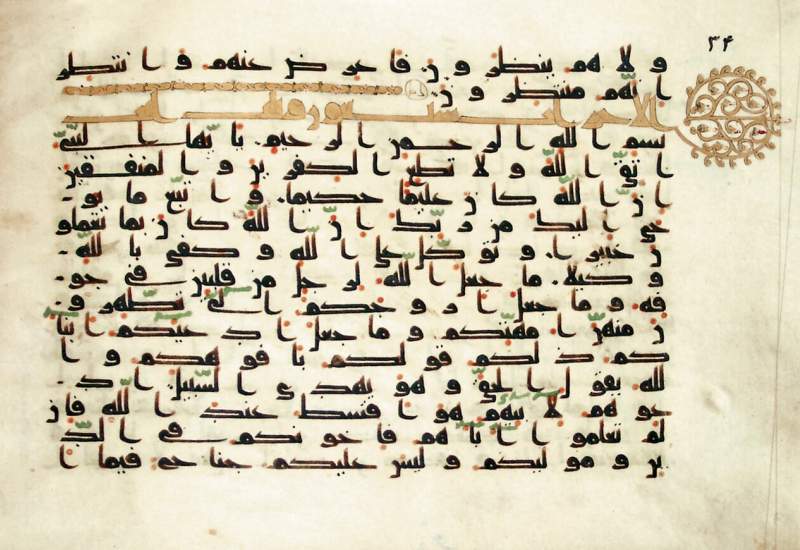 ٣٤
و لا هم ينظرون فاعرض عنهم و انتظر
انهم منتظرون
الاحزاب
بسم الله الرحمن الرحيم يايها النبى
اتق الله و لا تطع الكفرين و المنفقين
ان الله كان عليما حكيما و اتبع ما يو-
حى اليك من ربك ان الله كان بما تعملو
ن خبيرا و توكل على الله و كفى بالله-
وكيلا ما جعل الله لرجل من قلبين فى جو-
فه و ما جعل ازوجكم الى تظهرو-
ن منهن امهتكم و ما جعل ادعياكم ابنا
كم ذلكم قولكم بافوهكم و ا
لله يقول الحق و هو يهدى السبيل اد-
عوهم لابيهم هو اقسط عند الله فان
لم تعلموا اباهم فاخونكم فى الد
ين و موليكم و ليس عليكم جناح فيما ا